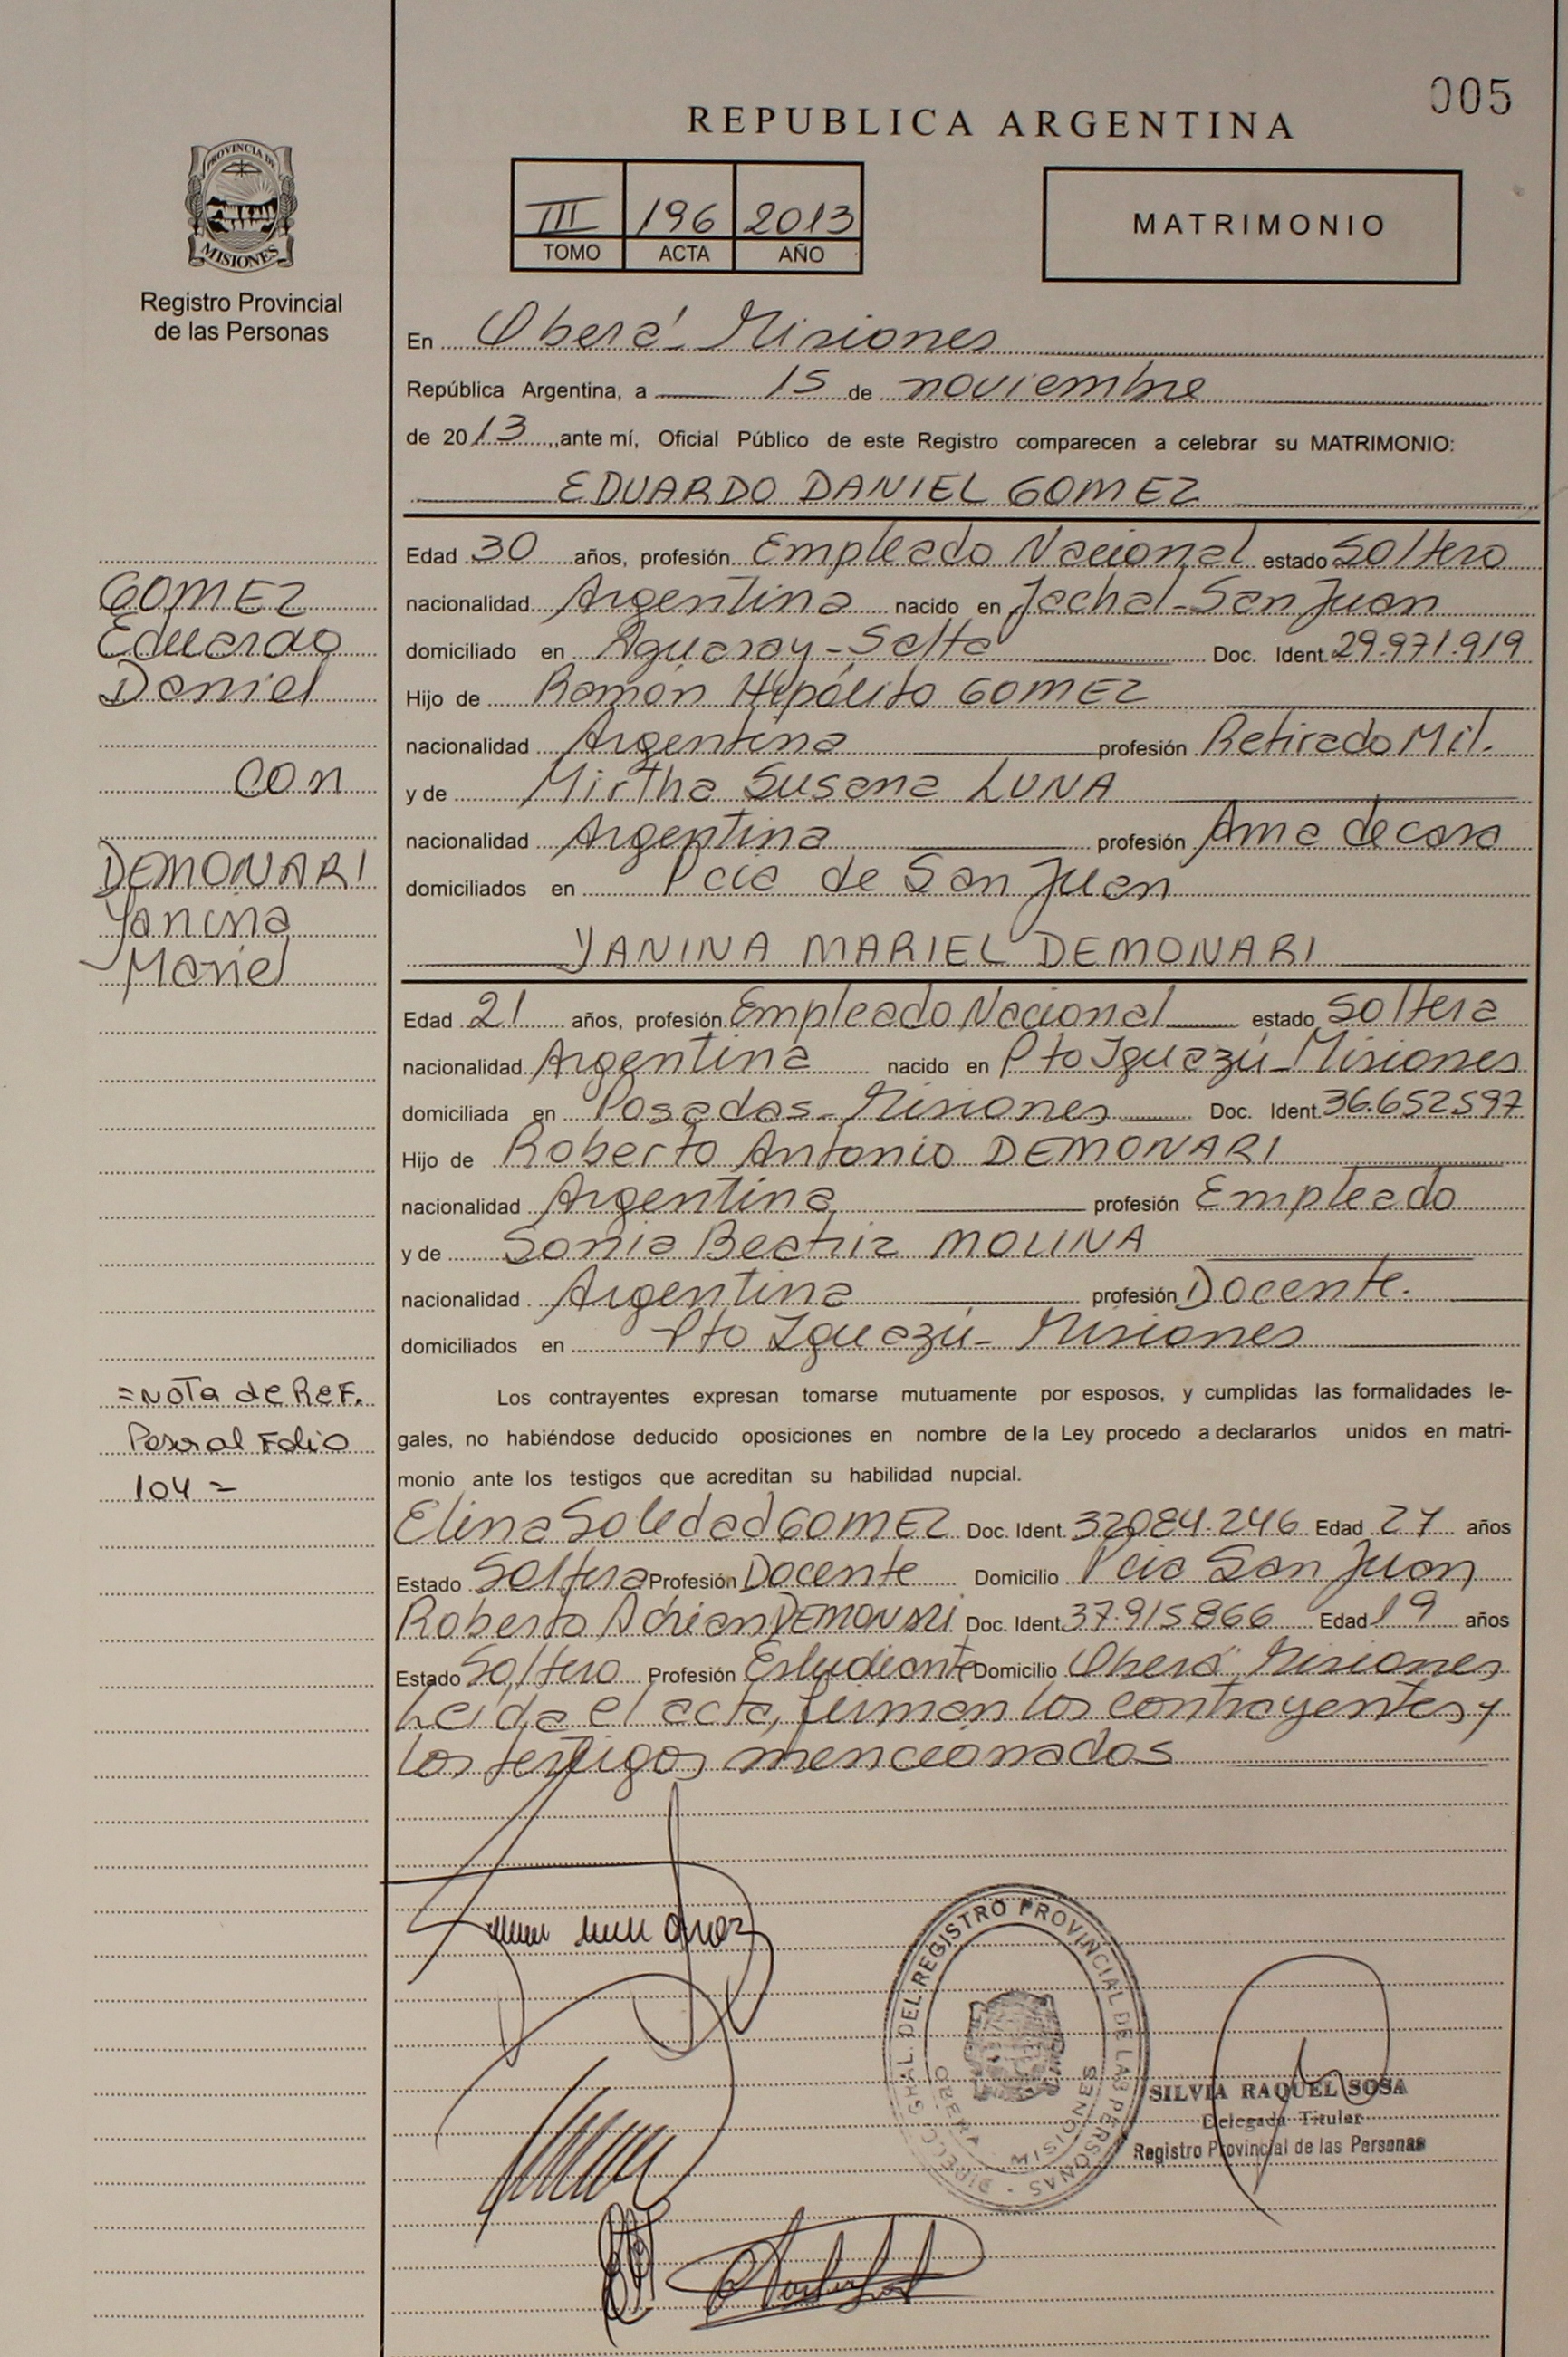 005
REPUBLICA ARGENTINA
PROVINCIA DE
MISIONES
Registro Provincial
de las Personas
III 196 2013
TOMO ACTA AÑO
MATRIMONIO
En Oberá - Misiones
República Argentina, a 15 de noviembre
de 2013, ante mí, Oficial Público de este Registro comparecen a celebrar su MATRIMONIO:
EDUARDO DANIEL GOMEZ
Edad 30 años, profesión Empleado Nacional estado Soltero
nacionalidad Argentina nacido en Jachal - San Juan
domiciliado en Aguaray - Salta Doc. Ident. 29.971.919
Hijo de Ramón Hipólito GOMEZ
nacionalidad Argentina profesión Retirado Mil.
y de Mirtha Susana LUNA
nacionalidad Argentina profesión Ama de casa
domiciliados en Pcia de San Juan
YANINA MARIEL DEMONARI
Edad 21 años, profesión Empleado Nacional estado Soltera
nacionalidad Argentina nacido en Pto Iguazú - Misiones
domiciliada en Posadas - Misiones Doc. Ident. 36.652597
Hijo de Roberto Antonio DEMONARI
nacionalidad Argentina profesión Empleado
y de Sonia Beatriz MOLINA
nacionalidad Argentina profesión Docente.
domiciliados en Pto Iguazú - Misiones
Los contrayentes expresan tomarse mutuamente por esposos, y cumplidas las formalidades le-
gales, no habiéndose deducido oposiciones en nombre de la Ley procedo a declararlos unidos en matri-
monio ante los testigos que acreditan su habilidad nupcial.
Elina Soledad GOMEZ Doc. Ident. 32084.246 Edad 27 años
Estado Soltera Profesión Docente Domicilio Pcia San Juan
Roberto Adrian DEMONARI Doc. Ident. 37.915866 Edad 19 años
Estado Soltero Profesión Estudiante Domicilio Oberá Misiones
Leida el acta, firman los contrayentes y
los testigos mencionados
GOMEZ
Eduardo
Daniel
con
DEMONARI
Yanina
Mariel
=NOTA de REF.
Pasa al Folio
104=
DEL REGISTRO PROVINCIAL DE LAS PERSONAS
OBERA MISIONES
SILVIA RAQUEL SOSA
Delegada Titular
Registro Provincial de las Personas